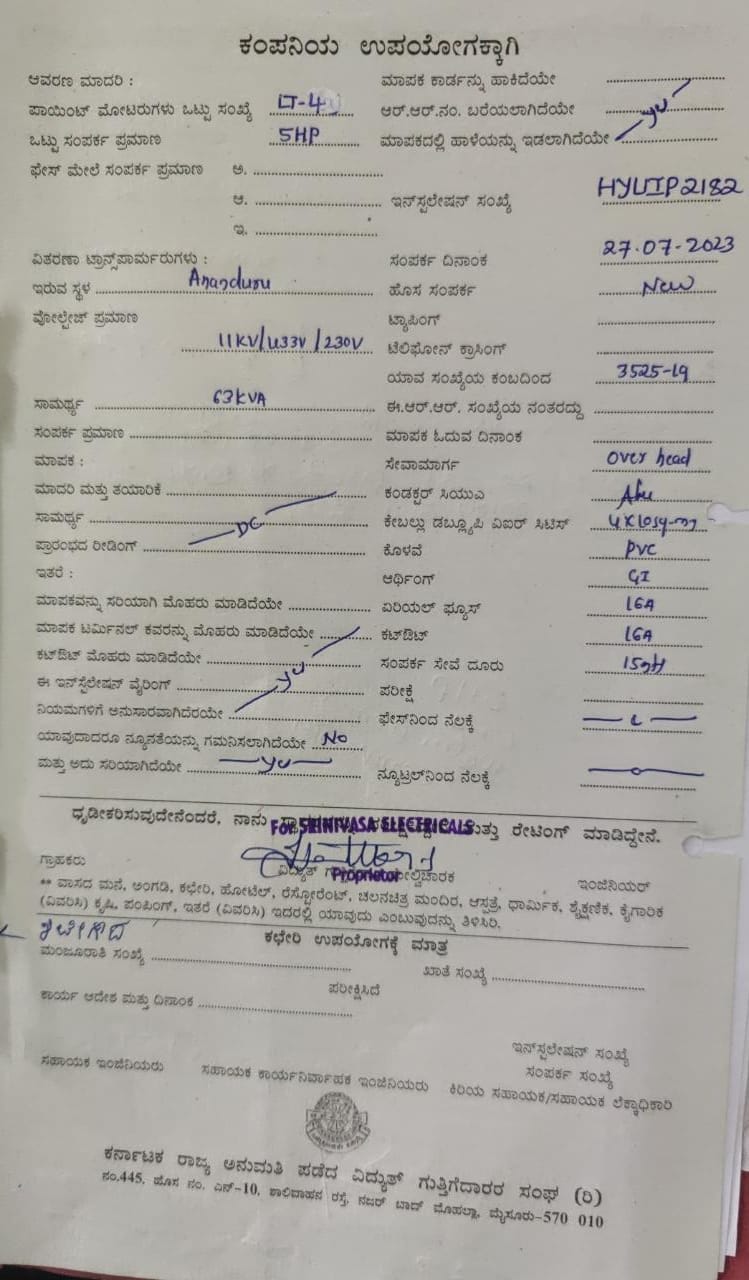 ಕಂಪನಿಯ ಉಪಯೋಗಕ್ಕಾಗಿ
ಆವರಣ ಮಾದರಿ : ಮಾಪಕ ಕಾರ್ಡನ್ನು ಹಾಕಿದೆಯೇ
ಪಾಯಿಂಟ್ ಮೋಟರುಗಳು ಒಟ್ಟು ಸಂಖ್ಯೆ LT-4 ಆರ್.ಆರ್.ನಂ. ಬರೆಯಲಾಗಿದೆಯೇ
ಒಟ್ಟು ಸಂಪರ್ಕ ಪ್ರಮಾಣ 5HP ಮಾಪಕದಲ್ಲಿ ಹಾಳೆಯನ್ನು ಇಡಲಾಗಿದೆಯೇ
ಫೇಸ್ ಮೇಲೆ ಸಂಪರ್ಕ ಪ್ರಮಾಣ ಅ.
ಆ. ಇನ್‌ಸ್ಟಲೇಷನ್ ಸಂಖ್ಯೆ HYUIP2182
ಇ.
ವಿತರಣಾ ಟ್ರಾನ್ಸ್‌ಪಾರ್ಮರುಗಳು : ಸಂಪರ್ಕ ದಿನಾಂಕ 27.07-2023
ಇರುವ ಸ್ಥಳ Ananduru ಹೊಸ ಸಂಪರ್ಕ New
ವೋಲ್ಟೇಜ್ ಪ್ರಮಾಣ ಟ್ಯಾಪಿಂಗ್
11KV/433V/230V ಟೆಲಿಫೋನ್ ಕ್ರಾಸಿಂಗ್
ಯಾವ ಸಂಖ್ಯೆಯ ಕಂಬದಿಂದ 3525-19
ಸಾಮರ್ಥ್ಯ 63KVA ಈ.ಆರ್.ಆರ್. ಸಂಖ್ಯೆಯ ನಂತರದ್ದು
ಸಂಪರ್ಕ ಪ್ರಮಾಣ ಮಾಪಕ ಓದುವ ದಿನಾಂಕ
ಮಾಪಕ : ಸೇವಾಮಾರ್ಗ over head
ಮಾದರಿ ಮತ್ತು ತಯಾರಿಕೆ ಕಂಡಕ್ಟರ್ ಸಿಯುಎ
ಸಾಮರ್ಥ್ಯ DC ಕೇಬಲ್ಲು ಡಬ್ಲ್ಯೂಪಿ ವಿಐರ್ ಸಿಟಿಸ್ 4X10sq-m
ಪ್ರಾರಂಭದ ರೀಡಿಂಗ್ ಕೊಳವೆ PVC
ಇತರೆ : ಆರ್ಥಿಂಗ್ GI
ಮಾಪಕವನ್ನು ಸರಿಯಾಗಿ ಮೊಹರು ಮಾಡಿದೆಯೇ ಏರಿಯಲ್ ಫ್ಯೂಸ್ 16A
ಮಾಪಕ ಟರ್ಮಿನಲ್ ಕವರನ್ನು ಮೊಹರು ಮಾಡಿದೆಯೇ ಕಟ್‌ಔಟ್ 16A
ಕಟ್‌ಔಟ್ ಮೊಹರು ಮಾಡಿದೆಯೇ ಸಂಪರ್ಕ ಸೇವೆ ದೂರು
ಈ ಇನ್‌ಸ್ಟಲೇಶನ್ ವೈರಿಂಗ್ ಪರೀಕ್ಷೆ
ನಿಯಮಗಳಿಗೆ ಅನುಸಾರವಾಗಿದೆರಯೇ ಫೇಸ್‌ನಿಂದ ನೆಲಕ್ಕೆ
ಯಾವುದಾದರೂ ನ್ಯೂನತೆಯನ್ನು ಗಮನಿಸಲಾಗಿದೆಯೇ No
ಮತ್ತು ಅದು ಸರಿಯಾಗಿದೆಯೇ ನ್ಯೂಟ್ರಲ್‌ನಿಂದ ನೆಲಕ್ಕೆ
ಧೃಡೀಕರಿಸುವುದೇನೆಂದರೆ, ನಾನು ಮತ್ತು ರೇಟಿಂಗ್ ಮಾಡಿದ್ದೇನೆ.
For SRINIVASA ELECTRICALS
ಗ್ರಾಹಕರು ಇಂಜಿನಿಯರ್
Proprietor
** ವಾಸದ ಮನೆ, ಅಂಗಡಿ, ಕಛೇರಿ, ಹೋಟೆಲ್, ರೆಸ್ಟೋರೆಂಟ್, ಚಲನಚಿತ್ರ ಮಂದಿರ, ಆಸ್ಪತ್ರೆ, ಧಾರ್ಮಿಕ, ಶೈಕ್ಷಣಿಕ, ಕೈಗಾರಿಕ
(ವಿವರಿಸಿ) ಕೃಷಿ, ಪಂಪಿಂಗ್, ಇತರೆ (ವಿವರಿಸಿ) ಇದರಲ್ಲಿ ಯಾವುದು ಎಂಬುವುದನ್ನು ತಿಳಿಸಿರಿ.
ಕಛೇರಿ ಉಪಯೋಗಕ್ಕೆ ಮಾತ್ರ
ಮಂಜೂರಾತಿ ಸಂಖ್ಯೆ ಖಾತೆ ಸಂಖ್ಯೆ
ಪರೀಕ್ಷಿಸಿದೆ
ಕಾರ್ಯ ಆದೇಶ ಮತ್ತು ದಿನಾಂಕ
ಇನ್‌ಸ್ಟಲೇಷನ್ ಸಂಖ್ಯೆ
ಸಂಪರ್ಕ ಸಂಖ್ಯೆ
ಸಹಾಯಕ ಇಂಜಿನಿಯರು ಸಹಾಯಕ ಕಾರ್ಯನಿರ್ವಾಹಕ ಇಂಜಿನಿಯರು ಕಿರಿಯ ಸಹಾಯಕ/ಸಹಾಯಕ ಲೆಕ್ಕಾಧಿಕಾರಿ
ಕರ್ನಾಟಕ ರಾಜ್ಯ ಅನುಮತಿ ಪಡೆದ ವಿದ್ಯುತ್ ಗುತ್ತಿಗೆದಾರರ ಸಂಘ (ರಿ)
ನಂ.445, ಹೊಸ ನಂ. ಎನ್-10, ಶಾಲಿವಾಹನ ರಸ್ತೆ, ನಜರ್ ಬಾದ್ ಮೊಹಲ್ಲಾ, ಮೈಸೂರು-570 010